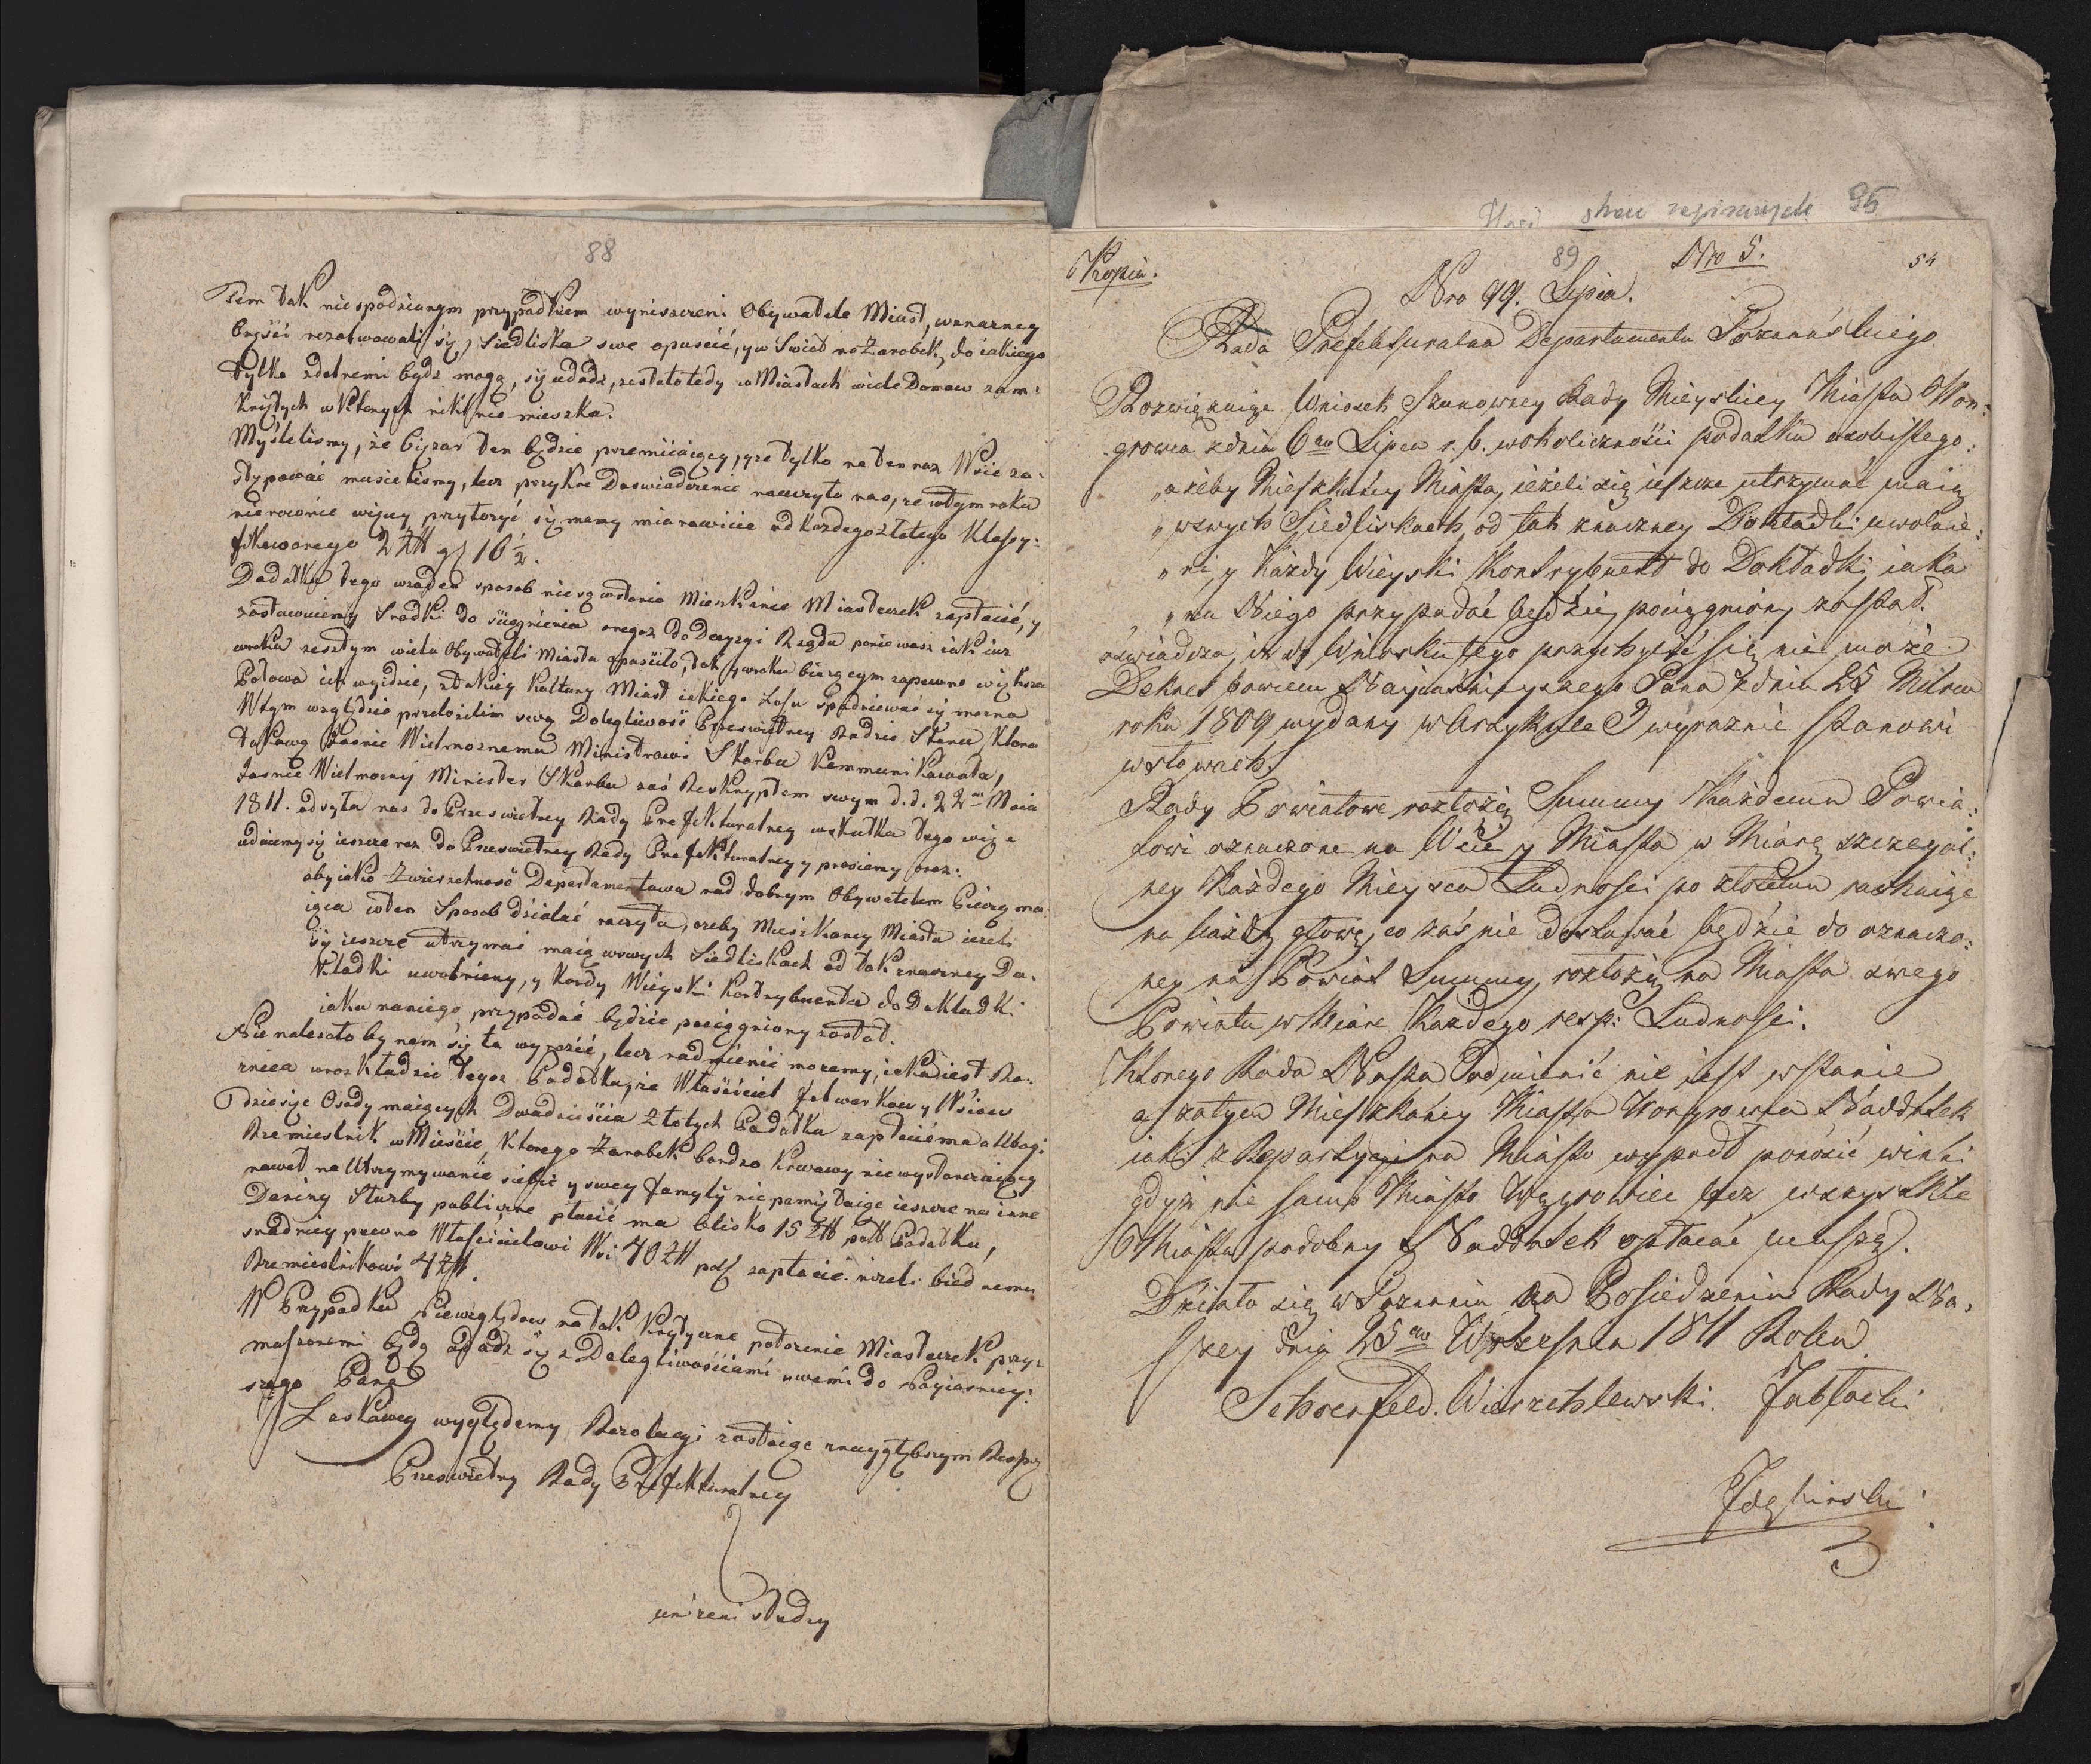 88
Tem tak niespodzianym przypadkiem wyniszczeni Obywatele Miast, wznaczney
Części rezolwowali się, Siedliska swe opuścić, y w Swiat na Zarobek, do iakiego
tylko zdolnemi bydz mogą, się udadz, zostało tedy w Miastach wiele Domow zam=
kniętych w ktorych nikt nie mieszka.
Myśleliśmy, że Ciężar ten będzie przemiiaiący, y że tylko na ten raz Wsie za=
stępować musieliśmy, lecz przykre Doswiadczenie nauczyło nas, ze w tym roku
nierownie więcey przyłożyć się mamy mianowicie od każdego złotego Klassy=
fikowanego 2 Zł gr 16 ½.
Dodatku tego wzaden sposob nie są wstanie Mieszkańce Miasteczek zapłacić, y
zostawuiemy Srodki do sciągnienia onegoz do Decyzyi Rządu poniewasz iak iuz
w roku zeszłym wielu Obywateli Miasta opusciło, tak y w roku bieżącym zapewne większa
Połowa ich wyidzie, z takiey Kultury Miast iakiego Losu spodziewać się mozna
W tym względzie przełożiliśm swą Dolegliwość Prześwietney Radzie Stanu, ktora
takową Jaśnie Wielmoznemu Ministrowi Skarbu Kommunikowała,
Jasnie Wielmozny Minister Skarbu zaś Reskryptem swym d. d. 22go Maia
1811. odsyła nas do Prześwietney Rady Prefekturalney wskutku tego więc
udaiemy się ieszcze raz do Prześwietney Rady Prefekturalney y prosiemy oraz:
aby iako Zwierzchność Departamentowa nad dobrym Obywatelem Pieczę ma=
iąca w ten Sposob działać raczyła, ażeby Mieszkancy Miasta iezeli
się ieszcze utrzymać maią w swych Siedliskach od tak znaczney Do=
kładki uwolnieny, y kazdy Wieyski Kontrybuenta do Dokładki
iaka na niego przypadać będzie pociągniony został.
Nie nalezało by nam się tu wyrazić, lecz nadmienić mozemy, iaka iest Ro=
znica w rozkładzie tegoz Podatku, że Właściciel folwarkow y Wsiow
Tdziesięc Osady maiących Dwadzieścia Złotych Podatku zapłacić ma a Ubogi
Rzemieslnik w Mieście, ktorego Zarobek bardzo Krwawy nie wystarczaiący
nawet na Utrzymywanie siebie y swey familyi nie pamiętaiąc ieszcze na inne
Daniny Służby publiczne płacić ma blisko 15 Zł pol Podatku,
snadniey pewno Właścicielowi Wsi 40 Zł pol zapłacić. nizeli biednemu
Rzemieslnikowi 4 Zł.
W Przypadku Niewzględow na tak Krytyczne połozenie Miasteczek przy=
muszonemi będą udadz się z Dolegliwościami swemi do Nayiasniey=
szego Pana
Łaskawey wyglądamy Rezolucyi zostaiąc z naygłębszym Resp
Prześwietny Rady Prefekturalney
unizeni Słudzy
stron zapisanych 95
Kopia.
89
Nro 5.
54
Nro 99. Lipca.
Rada Prefekturalna Departamentu Poznańskiego
Rozwiązuiąc Wniosek Szanowney Rady Mieyskiey Miasta Won=
growca z dnia 6go Lipca r. b. w okoliczności podatku osobistego:
„ażeby Mieszkańcy Miasta, ieżeli się ieszcze utrzymać maią
„w swych Siedliskach, od tak znaczney Dokładki uwolnie=
„ni, y Każdy Wieyski Kontrybuent do Dokładki, iaka
„na Niego przypadać będzie, pociągniony został.
oswiadcza, iż do Wniosku tego przychylić się nie może.
Dekret bowiem Nayiaśnieyszego Pana z dnia 25 Mca
roku 1809 wydany w Artykule 9 wyraznie stanowi
w słowach.
Rady Powiatowe rozłożą Summy Każdemu Powia=
towi oznaczone na Wsie y Miasta w Miarę szczegól=
ney Każdego Mieysca Ludności po złotemu rachuiąc
na każdą głowę, co zaś nie dostawać będzie do oznaczo=
ney na Powiat Summy, rozłożą na Miasta swego
Powiatu, w Miare Każdego resp: Ludności.
Ktorego Rada Nasza Odmienić nie iest w stanie
a zatym Mieszkańcy Miasta Wongrowca Naddatek
iaki z Repartycyi na Miasto wypadł ponosić winni
gdyż nie samo Miasto Wągrowiec lecz wszystkie
Miasta podobny Naddatek opłacać muszą.
Działo się w Poznaniu na Posiedzeniu Rady Na=
szey dnia 25go Września 1811 Roku.
Schoenfeld. Wierzchlewski. Jabłocki